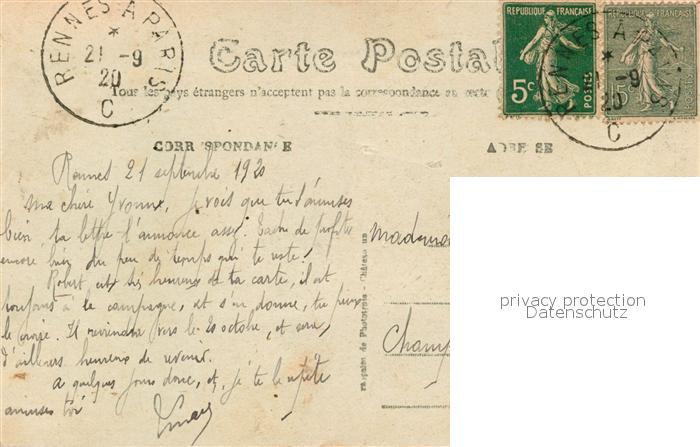 RENNES A PARIS
21 -9
20
C
Carte Postal
Tous les pays étrangers n'acceptent pas la correspondance au recto
REPUBLIQUE FRANÇAISE
5c
POSTES
REPUBLIQUE FRANÇAISE
RENNES A
-9
20
C
CORRESPONDANCE
ADRESSE
Rennes 21 septembre 1920
Ma chère Yvonne, je vois que tu t'amuses
bien, ta lettre l'annonce assez. Tâche de profiter
encore bien du peu de temps qui te reste.
Robert, est très heureux de ta carte, il est
toujours à la campagne, et s'en donne, tu peux
le croire. Il reviendra vers le 20 octobre, et sera
d'ailleurs heureux de revenir.
a quelques jours donc, et, je te le répète
amuses toi
Mademoi
Champ
privacy protection
Datenschutz